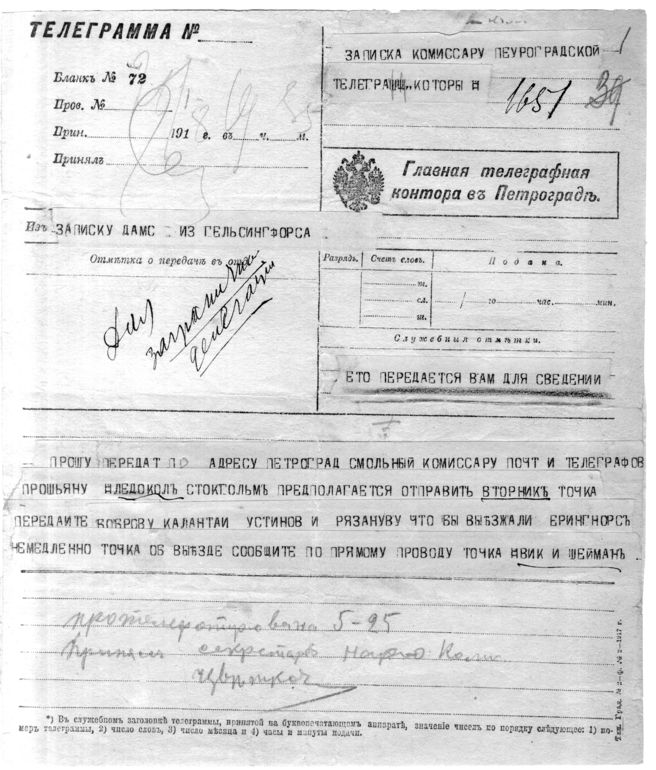 ТЕЛЕГРАММА №
Бланкъ № 72
Пров. №
Прин. 191 г. въ ч. м.
Принялъ
ЗАПИСКА КОМИССАРУ ПЕУРОГРАДСКОЙ
КОТОРЫ
1651
Главная телеграфная
контора въ Петроградѣ.
Изъ ЗАПИСКУ ДАМС ИЗ ГЕЛЬСИНГФОРСА
Отмѣтка о передачѣ въ отд
Для
заграничной
делегации
Разрядъ. Счетъ словъ. Подана.
т.
сл. / го час. мин.
т.
Служебныя отмѣтки.
ЕТО ПЕРЕДАЕТСЯ ВАМ ДЛЯ СВЕДЕНИИ
ПРОШУ ПЕРЕДАТ ПО АДРЕСУ ПЕТРОГРАД СМОЛЬНЫЙ КОМИССАРУ ПОЧТ И ТЕЛЕГРАФОВ
ПРОШЬЯНУ ЛЕДОКОЛЪ СТОКГОЛЬМЪ ПРЕДПОЛАГАЕТСЯ ОТПРАВИТЬ ВТОРНИКЪ ТОЧКА
ПЕРЕДАИТЕ БОБРОВУ КАЛАНТАИ УСТИНОВ И РЯЗАНУВУ ЧТО БЫ ВЫЕЗЖАЛИ ЕРИНГНОРСЪ
НЕМЕДЛЕННО ТОЧКА ОБ ВЫЕЗДЕ СООБЩИТЕ ПО ПРЯМОМУ ПРОВОДУ ТОЧКА НВИК И ШЕЙМАНЪ
протелефонирована 5-25
Принял секретарь
*) Въ служебномъ заголовкѣ телеграммы, принятой на буквопечатающемъ аппаратѣ, значеніе чиселъ по порядку слѣдующее: 1) но-
меръ телеграммы, 2) число словъ, 3) число мѣсяца и 4) часы и минуты подачи.